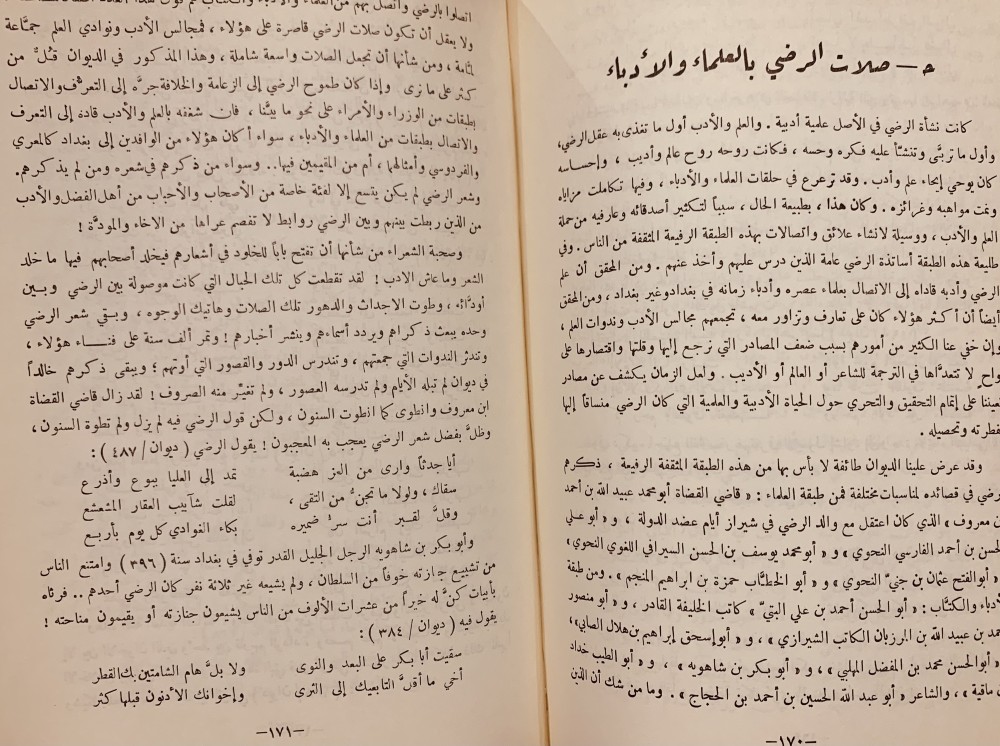 ح — صلات الرضي بالعلماء والأدباء
كانت نشأة الرضي في الأصل علمية أدبية . والعلم والأدب أول ما تغذى به عقل الرضي،
وأول ما تربَّى وتنشأ عليه فكره وحسه ، فكانت روحه روح عالم وأديب ، وإحساسه
كان يوحي إيحاء علم وأدب . وقد ترعرع في حلقات العلماء والأدباء ، وفيها تكاملت مزاياه
ونمت مواهبه وغرائزه . وكان هذا ، بطبيعة الحال ، سبباً لتكثير أصدقائه وعارفيه من حملة
العلم والأدب ، ووسيلة لانشاء علائق واتصالات بهذه الطبقة الرفيعة المثقفة من الناس . وفي
طليعة هذه الطبقة أساتذة الرضي عامة الذين درس عليهم وأخذ عنهم . ومن المحقق أن علم
الرضي وأدبه قاداه إلى الاتصال بعلماء عصره وأدباء زمانه في بغداد وغير بغداد ، ومن المحقق
أيضاً أن أكثر هؤلاء كان على تعارف وتزاور معه ، تجمعهم مجالس الأدب وندوات العلم ،
وإن خفي عنا الكثير من أمورهم بسبب ضعف المصادر التي نرجع إليها وقلتها واقتصارها على
واح لا تتعدَّاها في الترجمة للشاعر أو العالم أو الأديب . ولعل الزمان يكشف عن مصادر
تعيننا على إتمام التحقيق والتحري حول الحياة الأدبية والعلمية التي كان الرضي منساقاً إليها
فطرته وتحصيله .
وقد عرض علينا الديوان طائفة لا بأس بها من هذه الطبقة المثقفة الرفيعة ، ذكرهم
رضي في قصائده لمناسبات مختلفة فمن طبقة العلماء : « قاضي القضاة أبو محمد عبيد الله بن أحمد
ن معروف » الذي كان اعتقل مع والد الرضي في شيراز أيام عضد الدولة ، و « أبو علي
لحسن بن أحمد الفارسي النحوي » و « أبو محمد يوسف بن الحسن السيرافي اللغوي النحوي »
« أبو الفتح عثمان بن جنيّ النحوي » و « أبو الخطَّاب حمزة بن ابراهيم المنجم » . ومن طبقة
لأدباء والكتَّاب : « أبو الحسن أحمد بن علي البتيّ » كاتب الخليفة القادر ، و « أبو منصور
حمد بن عبيد الله بن المرزبان الكاتب الشيرازي » ، و « أبو إسحق إبراهيم بن هلال الصابي »،
« أبو الحسن محمد بن المفضل المهلبي » ، و « أبو بكر بن شاهويه » ، و « أبو الطيب خداد
ن مافية » ، والشاعر « أبو عبد الله الحسين بن أحمد بن الحجاج » . وما من شك أن الذين
—١٧٠—
اتصلوا بالرضي واتصل بهم من العلماء والأدباء
ولا يعقل أن تكون صلات الرضي قاصرة على هؤلاء ، فمجالس الأدب ونوادي العلم جمَّاعة
لمَّامة ، ومن شأنها أن تجعل الصلات واسعة شاملة ، وهذا المذكور في الديوان قُلٌّ من
كثر على ما نرى . وإذا كان طموح الرضي إلى الزعامة والخلافة جرَّه إلى التعرُّف والاتصال
بطبقات من الوزراء والأمراء على نحو ما بيّنّا ، فان شغفه بالعلم والأدب قاده إلى التعرف
والاتصال بطبقات من العلماء والأدباء ، سواء أكان هؤلاء من الوافدين إلى بغداد كالمعري
والفردوسي وأمثالهما ، أم من المقيمين فيها .. وسواء من ذكرهم في شعره ومن لم يذكرهم.
وشعر الرضي لم يكن يتسع إلا لفئة خاصة من الأصحاب والأحباب من أهل الفضل والأدب
من الذين ربطت بينهم وبين الرضي روابط لا تفصم عراها من الاخاء والمودَّة !
وصحبة الشعراء من شأنها أن تفتح باباً للخلود في أشعارهم فيخلد أصحابهم فيها ما خلد
الشعر وما عاش الادب ! لقد تقطعت كل تلك الحبال التي كانت موصولة بين الرضي وبين
أودَّائه ، وطوت الاجداث والدهور تلك الصلات وهاتيك الوجوه ، وبقي شعر الرضي
وحده يبعث ذكراهم ويردد أسماءهم وينشر أخبارهم ! وتمر ألف سنة على فناء هؤلاء ،
وتندثر الندوات التي جمعتهم ، وتندرس الدور والقصور التي أوتهم ؛ ويبقى ذكرهم خالداً
في ديوان لم تبله الأيام ولم تدرسه العصور ، ولم تغيِّر منه الصروف ! لقد زال قاضي القضاة
ابن معروف وانطوى كما انطوت السنون ، ولكن قول الرضي فيه لم يزل ولم تطوه السنون ،
وظلَّ بفضل شعر الرضي يعجب به المعجبون ! يقول الرضي ( ديوان / ٤٨٧ ) :
أيا جدثاً وارى من العز هضبة تمد إلى العليا يبوع وأذرع
سقاك ، ولولا ما تجنُّ من التقى ، لقلت شآبيب العقار المشعشع
وقلَّ لقبر أنت سرُّ ضميره بكاء الغوادي كل يوم بأربع
وأبو بكر بن شاهويه الرجل الجليل القدر توفي في بغداد سنة ( ٣٩٦ ) وامتنع الناس
من تشييع جنازته خوفاً من السلطان ، ولم يشيعه غير ثلاثة نفر كان الرضي أحدهم .. فرثاه
بأبيات كنَّ له خيراً من عشرات الألوف من الناس يشيعون جنازته أو يقيمون مناحته !
يقول فيه ( ديوان / ٣٨٤ ) :
سقيت أبا بكر على البعد والنوى ولا بلَّ هام الشامتين بك القطر
أخي ما أقلَّ التابعيك إلى الثرى وإخوانك الأدنون قبلها كثر
—١٧١—